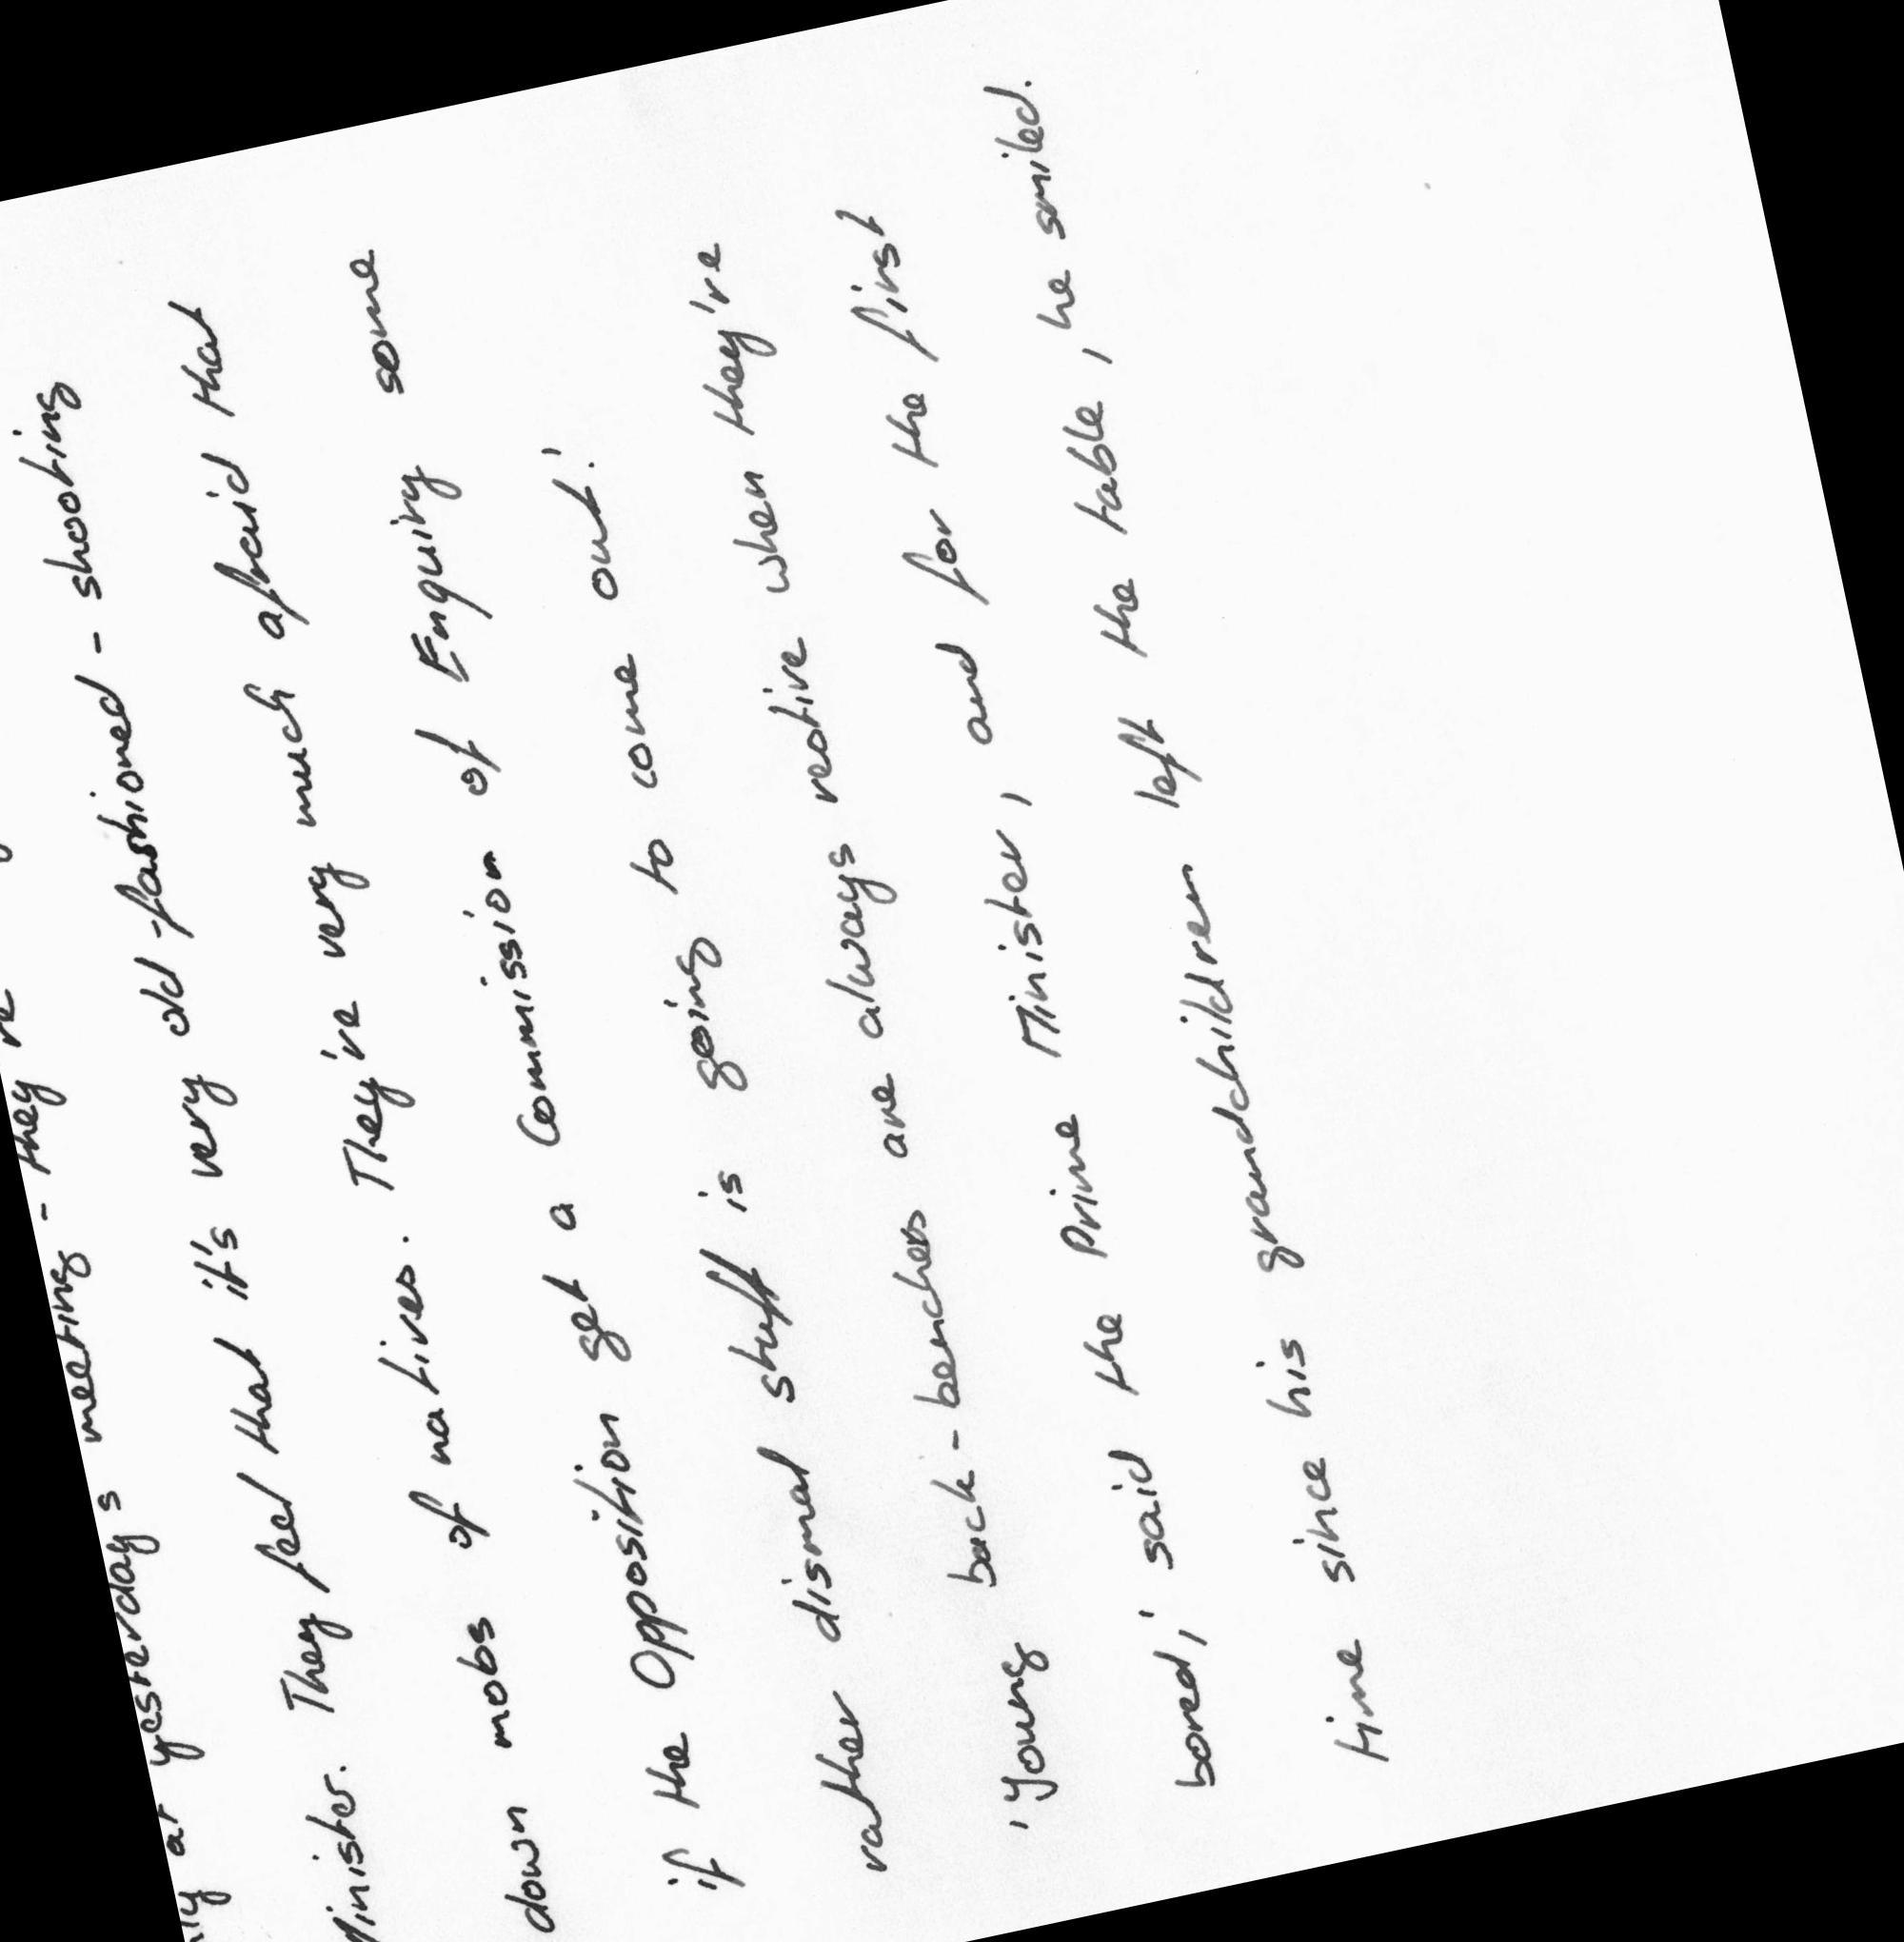 at yesterday's meeting - they're
Minister. They feel that it's very old-fashioned - shooting
down mobs of natives. They're very much afraid that
if the Opposition get a Commission of Enquiry some
rather dismal stuff is going to come out.'
'Young back-benchers are always restive when they're
bored,' said the Prime Minister, and for the first
time since his grandchildren left the table, he smiled.